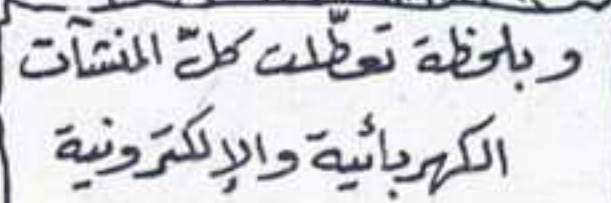 و بلحظة تعطّلت كلّ المنشآت
الكهربائية والإلكترونية